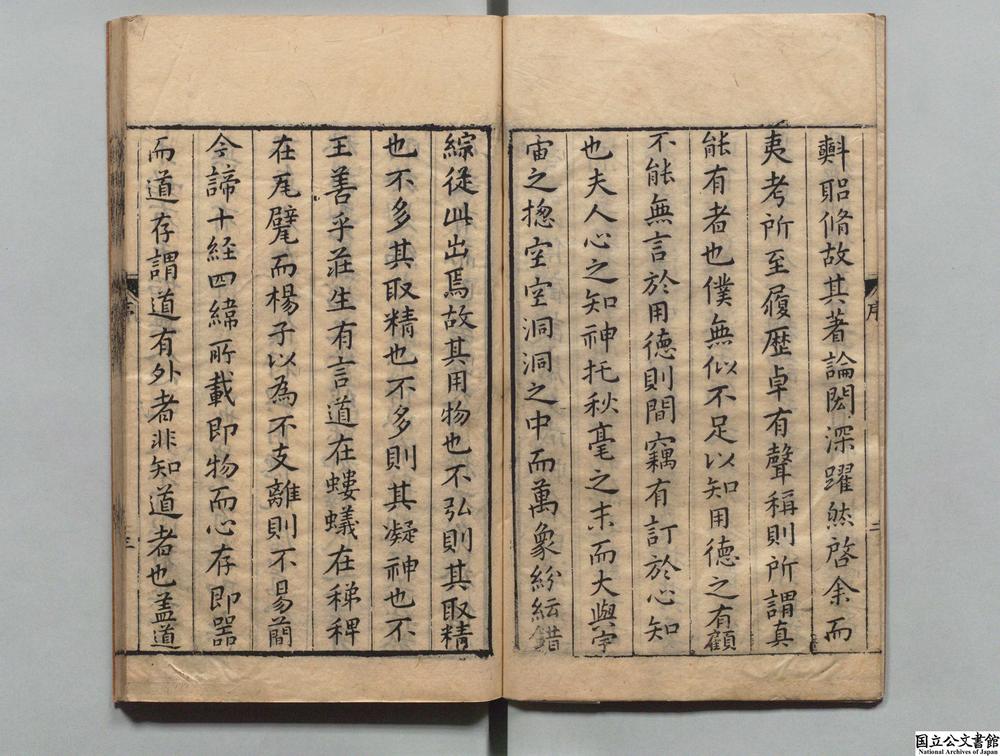 斠聖脩故其著論閎深躍然啓余而
夷考所至履歴卓有聲稱則所謂真
能有者也僕無似不足以知用德之有顧
不能無言於用德則間竊有訂於心知
也夫人心之知神托秋毫之末而大與宇
宙之揔空空洞洞之中而萬象紛紜錯
綜從此出焉故其用物也不弘則其取精
也不多其取精也不多則其凝神也不
王善乎莊生有言道在螻蟻在稊稗
在尾甓而楊子以為不支離則不易蕳
今諦十経四緯所載即物而心存即器
而道存謂道有外者非知道者也盖道
序
二
序
三
国立公文書館
National Archives of Japan